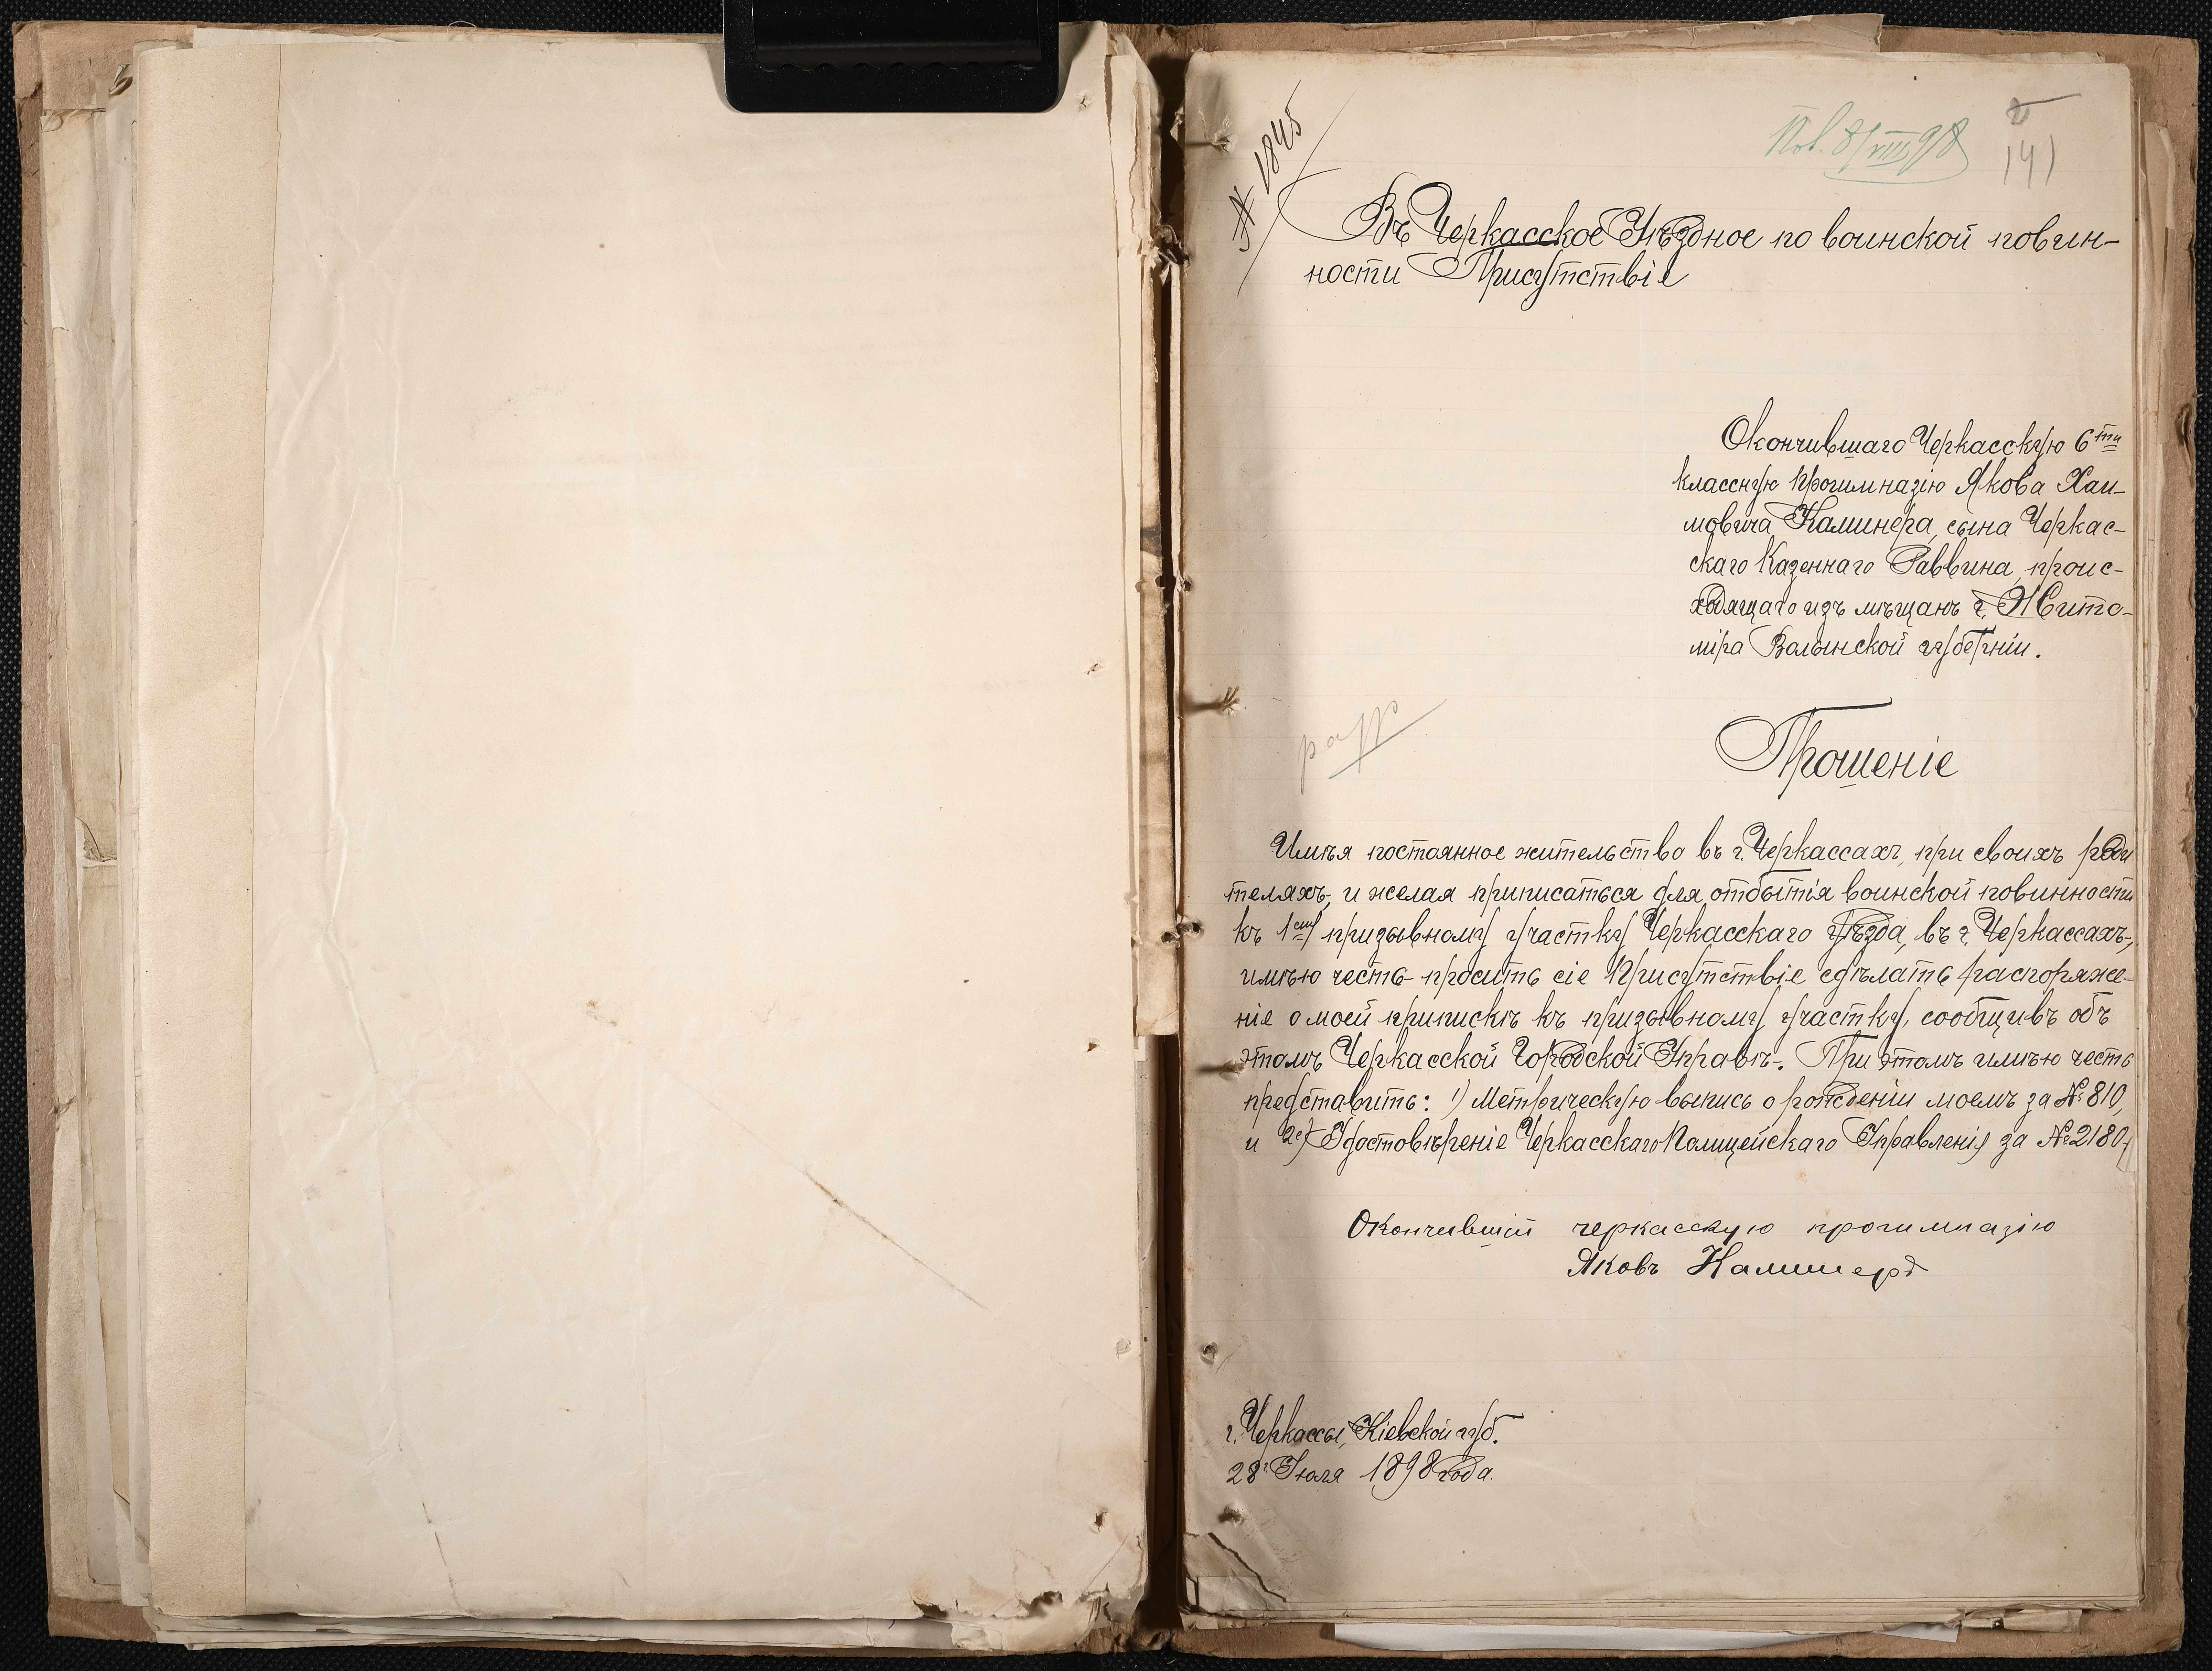 № 1845
Пол. 8/VIII 98
141
Въ Черкасское Уѣздное по воинской повин-
ности Присутствіе
Окончившаго Черкасскую 6ти
классную Прогимназію Якова Хаи-
мовича Каминера, сына Черкас-
скаго Казеннаго Раввина, проис-
ходящаго изъ мѣщанъ г. Жито-
міра Волынской губерніи.
Прошеніе
Имѣя постоянное жительство въ г. Черкассахъ, при своихъ роди
теляхъ, и желая приписаться для отбытія воинской повинности
къ 1ому призывному участку Черкасскаго уѣзда, въ г. Черкассахъ,
имѣю честь просить сіе Присутствіе сдѣлать распоряже-
ніе о моей припискѣ къ призывному участку, сообщивъ объ
этомъ Черкасской Городской Управѣ. При этомъ имѣю честь
представить: 1) Метрическую выпись о рожденіи моемъ за № 810,
и 2е) Удостовѣреніе Черкасскаго Полицейскаго Управленія за № 2180.
Окончившій черкасскую прогимназію
Яковъ Каминеръ
г. Черкассы, Кіевской губ.
28го Іюля 1898 года.